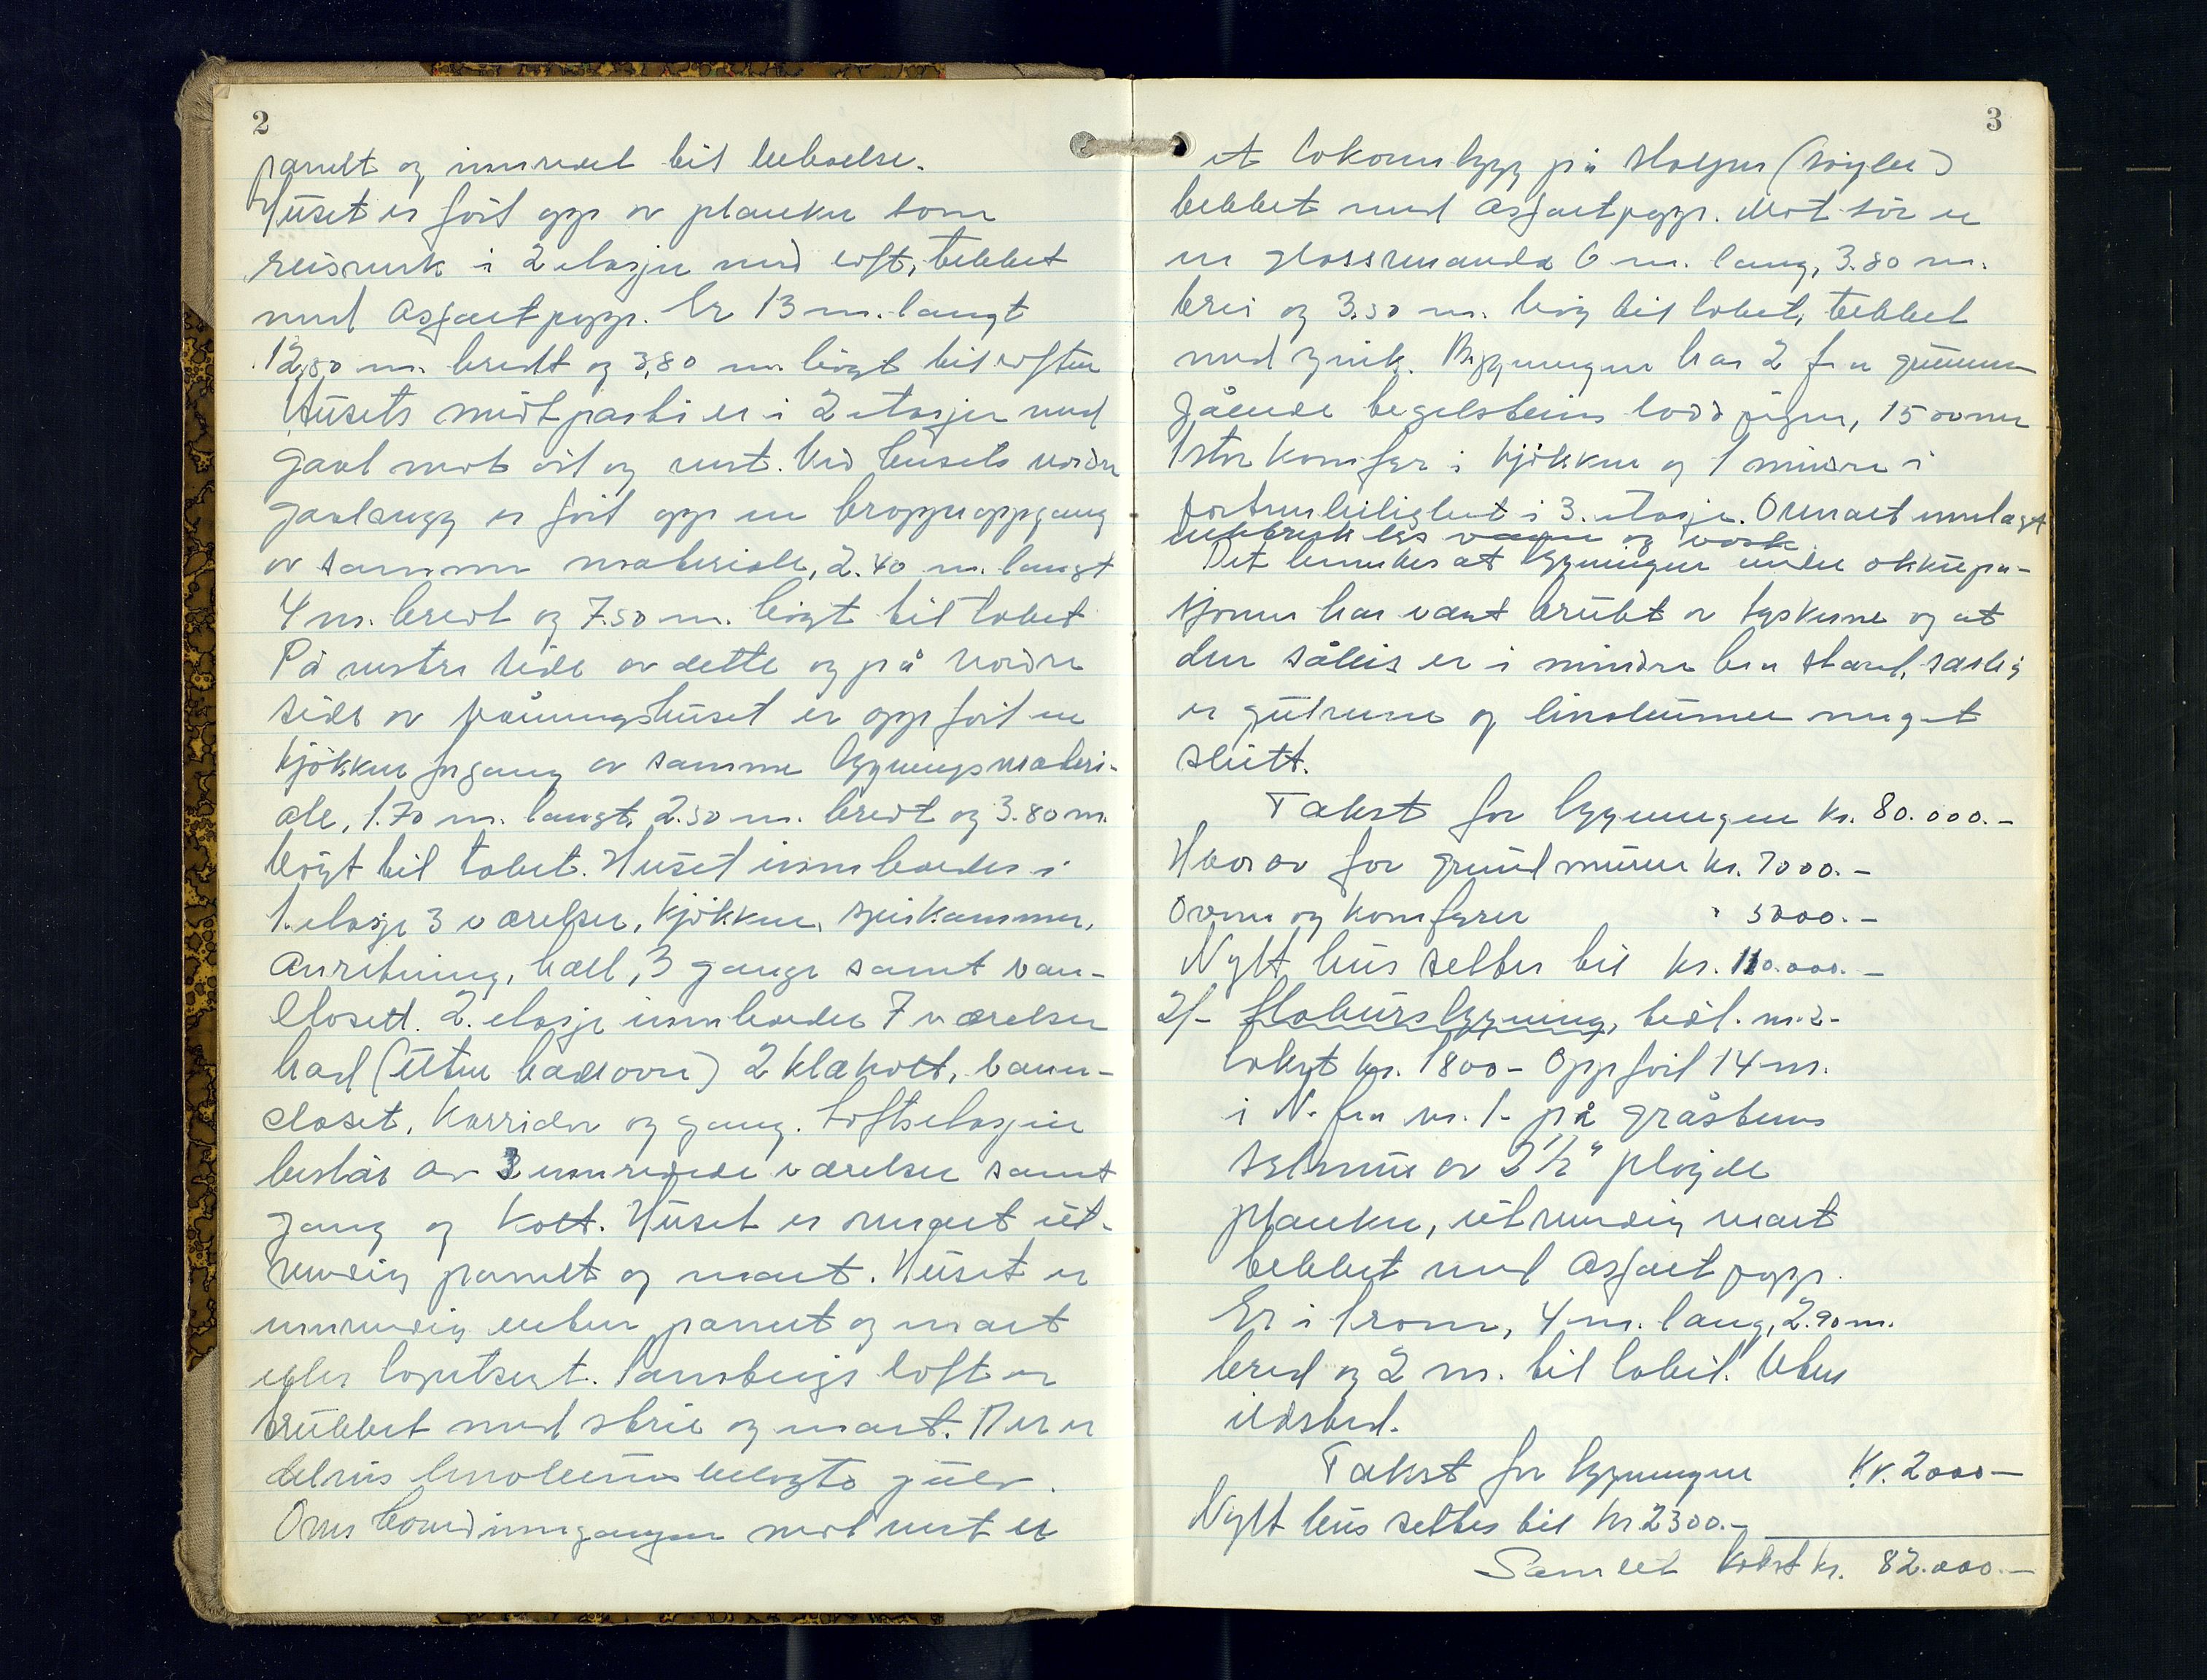 2
panelt og innredet til beboelse.
Huset er ført opp av planker som
reisverk i 2 etasjer med loft, tekket
med asfaltpapp. Er 13 m. langt
12,80 m. bredt og 3,80 m. høigt til loftet
Husets midtparti er i 2 etasjer med
gavl mot øst og vest. Ved husets nordre
gavlvegg er ført opp en trappeoppgang
av samme materiale, 2.40 m. langt
4 m. bredt og 7.50 m. høigt til taket
På vestre side av dette og på nordre
side av våningshuset er oppført en
kjøkkeninngang av samme bygningsmateri-
ale, 1.70 m. langt, 2.50 m. bredt og 3.80 m.
høigt til taket. Huset inneholder i
1. etasje 3 værelser, kjøkken, spiskammer,
anretning, hall, 3 ganger samt van-
closett. 2. etasje inneholder 7 værelser
bad (uten badeovn) 2 klækott, vann-
closet, korridor og gang. Loftsetasjen
består av 3 innredede værelser samt
gang og kott. Huset er overalt ut-
vendig panelt og malt. Huset er
innvendig enten panelt og malt
eller tapetsert. Samtlige loft er
trukket med strie og malt. Der er
delvis linoleumsbelagte gulv.
Over hovedinngangen mot vest er
3
et takombygg på stolper (søyler)
tekket med asfaltpapp. Mot sør er
en glassveranda 6 m. lang, 3.80 m.
brei og 3.50 m. høig til taket, tekket
med zink. Bygningen har 2 fra grunnen
gående teglsteins loddpiper, 15 ovner
1 stor komfyr i kjøkken og 1 mindre i
portnerleilighet i 3. etasje. Overalt innlagt
elektrisk lys vann og vask
Det bemerkes at bygningen under okkupa-
sjonen har vært brukt av tyskerne og at
den således er i mindre bra stand, særlig
er gulvene og linoleumen meget
slitt.
Takst for bygningen kr. 80.000.-
Hvorav for grundmuren kr. 7000.-
Ovner og komfyrer " 5000.-
Nytt hus settes til kr. 110.000.-
2/- Stabursbygning, tidl. nr. 2-
takst kr. 1800- Oppført 14 m.
i N. fra nr. 1- på gråsteins
av 2 1/2" pløyde
planker, utvendig malt
tekket med asfaltpapp.
Er i 1 rom, 4 m. lang, 2.90 m.
bred og 2 m. til taket. Uten
ildsted.
Takst for bygningen Kr. 2000-
Nytt hus settes til kr. 2300.-
Samlet takst kr. 82.000.-